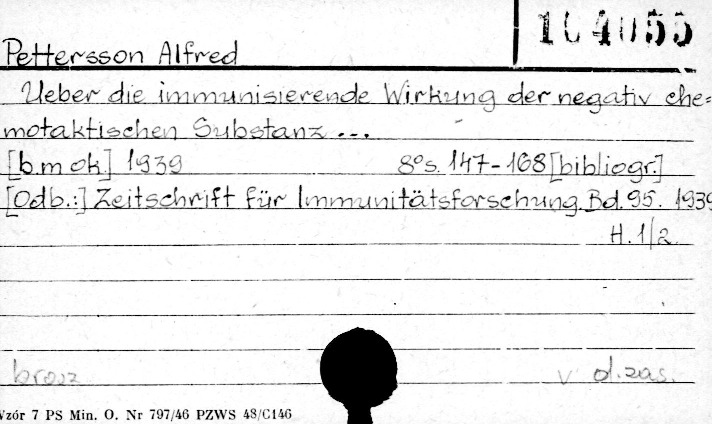 104055
Pettersson Alfred
Ueber die immunisierende Wirkung der negativ che=
motaktischen Substanz...
[b.m ok.] 1939 8°s. 147-168 [bibliogr.]
[Odb.:] Zeitschrift für Immunitätsforschung. Bd. 95. 1939
H. 1/2.
brosz v d.zas.
Wzór 7 PS Min. O. Nr 797/46 PZWS 48/C146